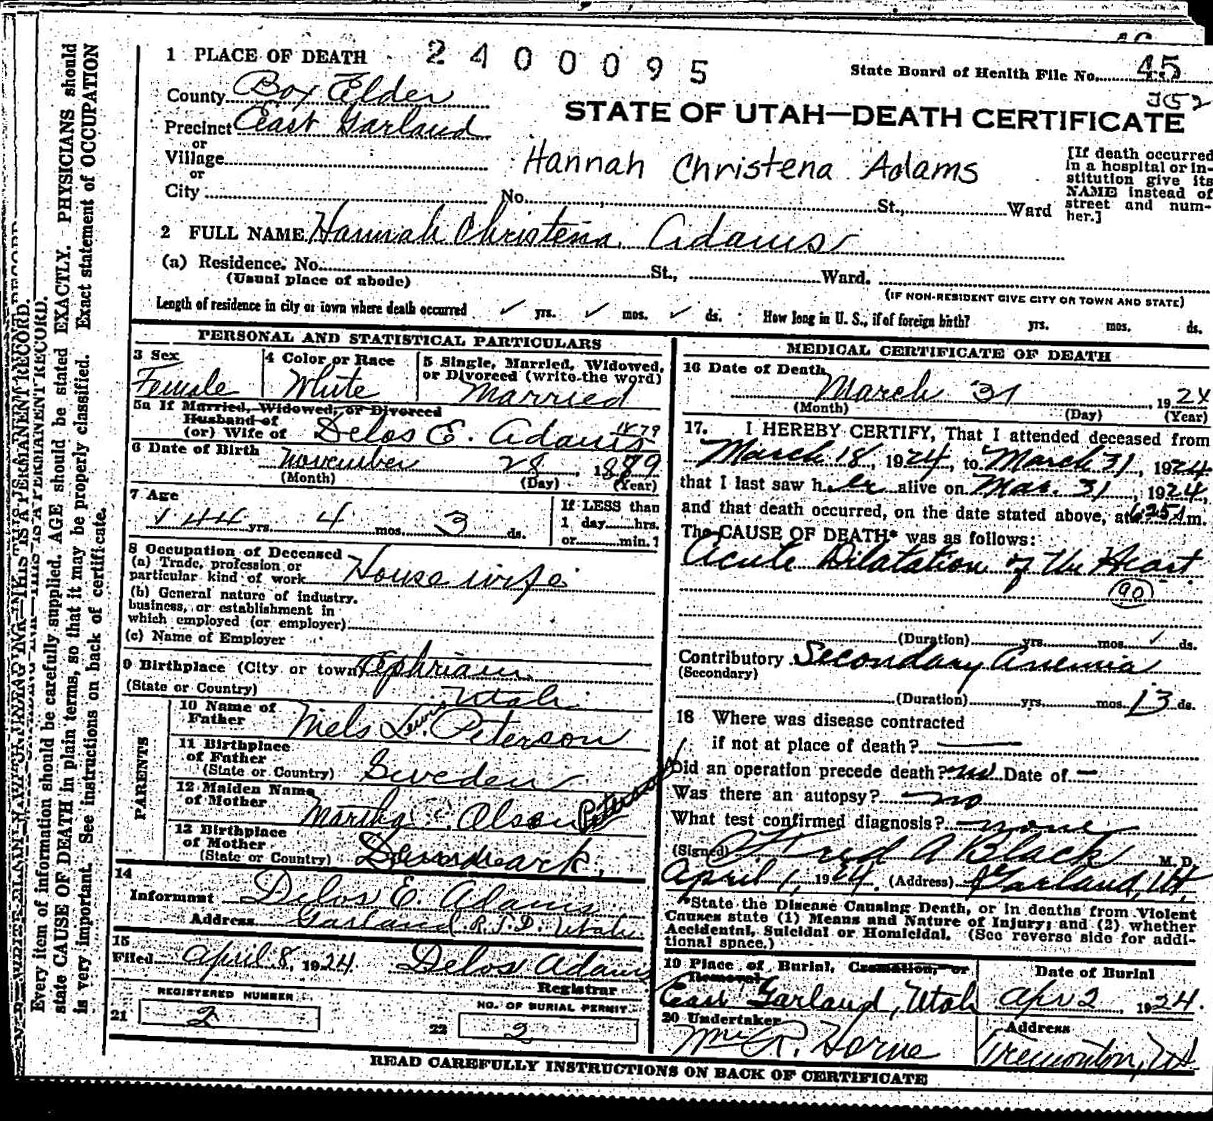 1 PLACE OF DEATH 2400095 State Board of Health File No. 45
352
County Box Elder
STATE OF UTAH—DEATH CERTIFICATE
Precinct East Garland
or
Village
Hannah Christena Adams
[If death occurred in a hospital or institution give its NAME instead of street and number.]
or
City No. St., Ward
2 FULL NAME Hannah Christena Adams
(a) Residence. No. St., Ward.
(Usual place of abode) (IF NON-RESIDENT GIVE CITY OR TOWN AND STATE)
Length of residence in city or town where death occurred ✓ yrs. ✓ mos. ✓ ds. How long in U. S., if of foreign birth? yrs. mos. ds.
PERSONAL AND STATISTICAL PARTICULARS
3 Sex Female
4 Color or Race White
5 Single, Married, Widowed, or Divorced (write the word) Married
5a If Married, Widowed, or Divorced
Husband of
(or) Wife of Delos E. Adams
1879
6 Date of Birth November 28, 1889
(Month) (Day) (Year)
7 Age
44 yrs. 4 mos. 3 ds.
If LESS than
1 day hrs.
or min.?
8 Occupation of Deceased
(a) Trade, profession or particular kind of work Housewife
(b) General nature of industry, business, or establishment in which employed (or employer)
(c) Name of Employer
9 Birthplace (City or town) Ephriam
(State or Country) Utah
PARENTS
10 Name of Father Niels Lewis Peterson
11 Birthplace of Father
(State or Country) Sweden
12 Maiden Name of Mother Martha C. Olson Peterson
13 Birthplace of Mother
(State or Country) Denmark.
14
Informant Delos E. Adams
Address Garland (R.F.D. Utah
15
Filed April 8, 1924 Delos Adams
Registrar
REGISTERED NUMBER
21 2
NO. OF BURIAL PERMIT
22 2
MEDICAL CERTIFICATE OF DEATH
16 Date of Death
March 31 1924
(Month) (Day) (Year)
17. I HEREBY CERTIFY, That I attended deceased from
March 18, 1924, to March 31, 1924
that I last saw her alive on Mar. 31, 1924,
and that death occurred, on the date stated above, at 6:25 A m.
The CAUSE OF DEATH* was as follows:
Acute Dilatation of the Heart
(90)
(Duration) yrs. mos. ✓ ds.
Contributory Secondary Anemia
(Secondary)
(Duration) yrs. mos. 13 ds.
18 Where was disease contracted
if not at place of death?
Did an operation precede death? no Date of —
Was there an autopsy? no
What test confirmed diagnosis? none
(Signed) Fred A Black M. D.
April 1, 1924. (Address) Garland, Ut.
*State the Disease Causing Death, or in deaths from Violent
Causes state (1) Means and Nature of Injury; and (2) whether
Accidental, Suicidal or Homicidal. (See reverse side for additional space.)
19 Place of Burial, Cremation, or Removal
East Garland, Utah
Date of Burial
Apr 2 1924.
20 Undertaker
Mrs R. Horne
Address
Tremonton, Ut
READ CAREFULLY INSTRUCTIONS ON BACK OF CERTIFICATE
Every item of information should be carefully supplied. AGE should be stated EXACTLY. PHYSICIANS should
state CAUSE OF DEATH in plain terms, so that it may be properly classified. Exact statement of OCCUPATION
is very important. See instructions on back of certificate.